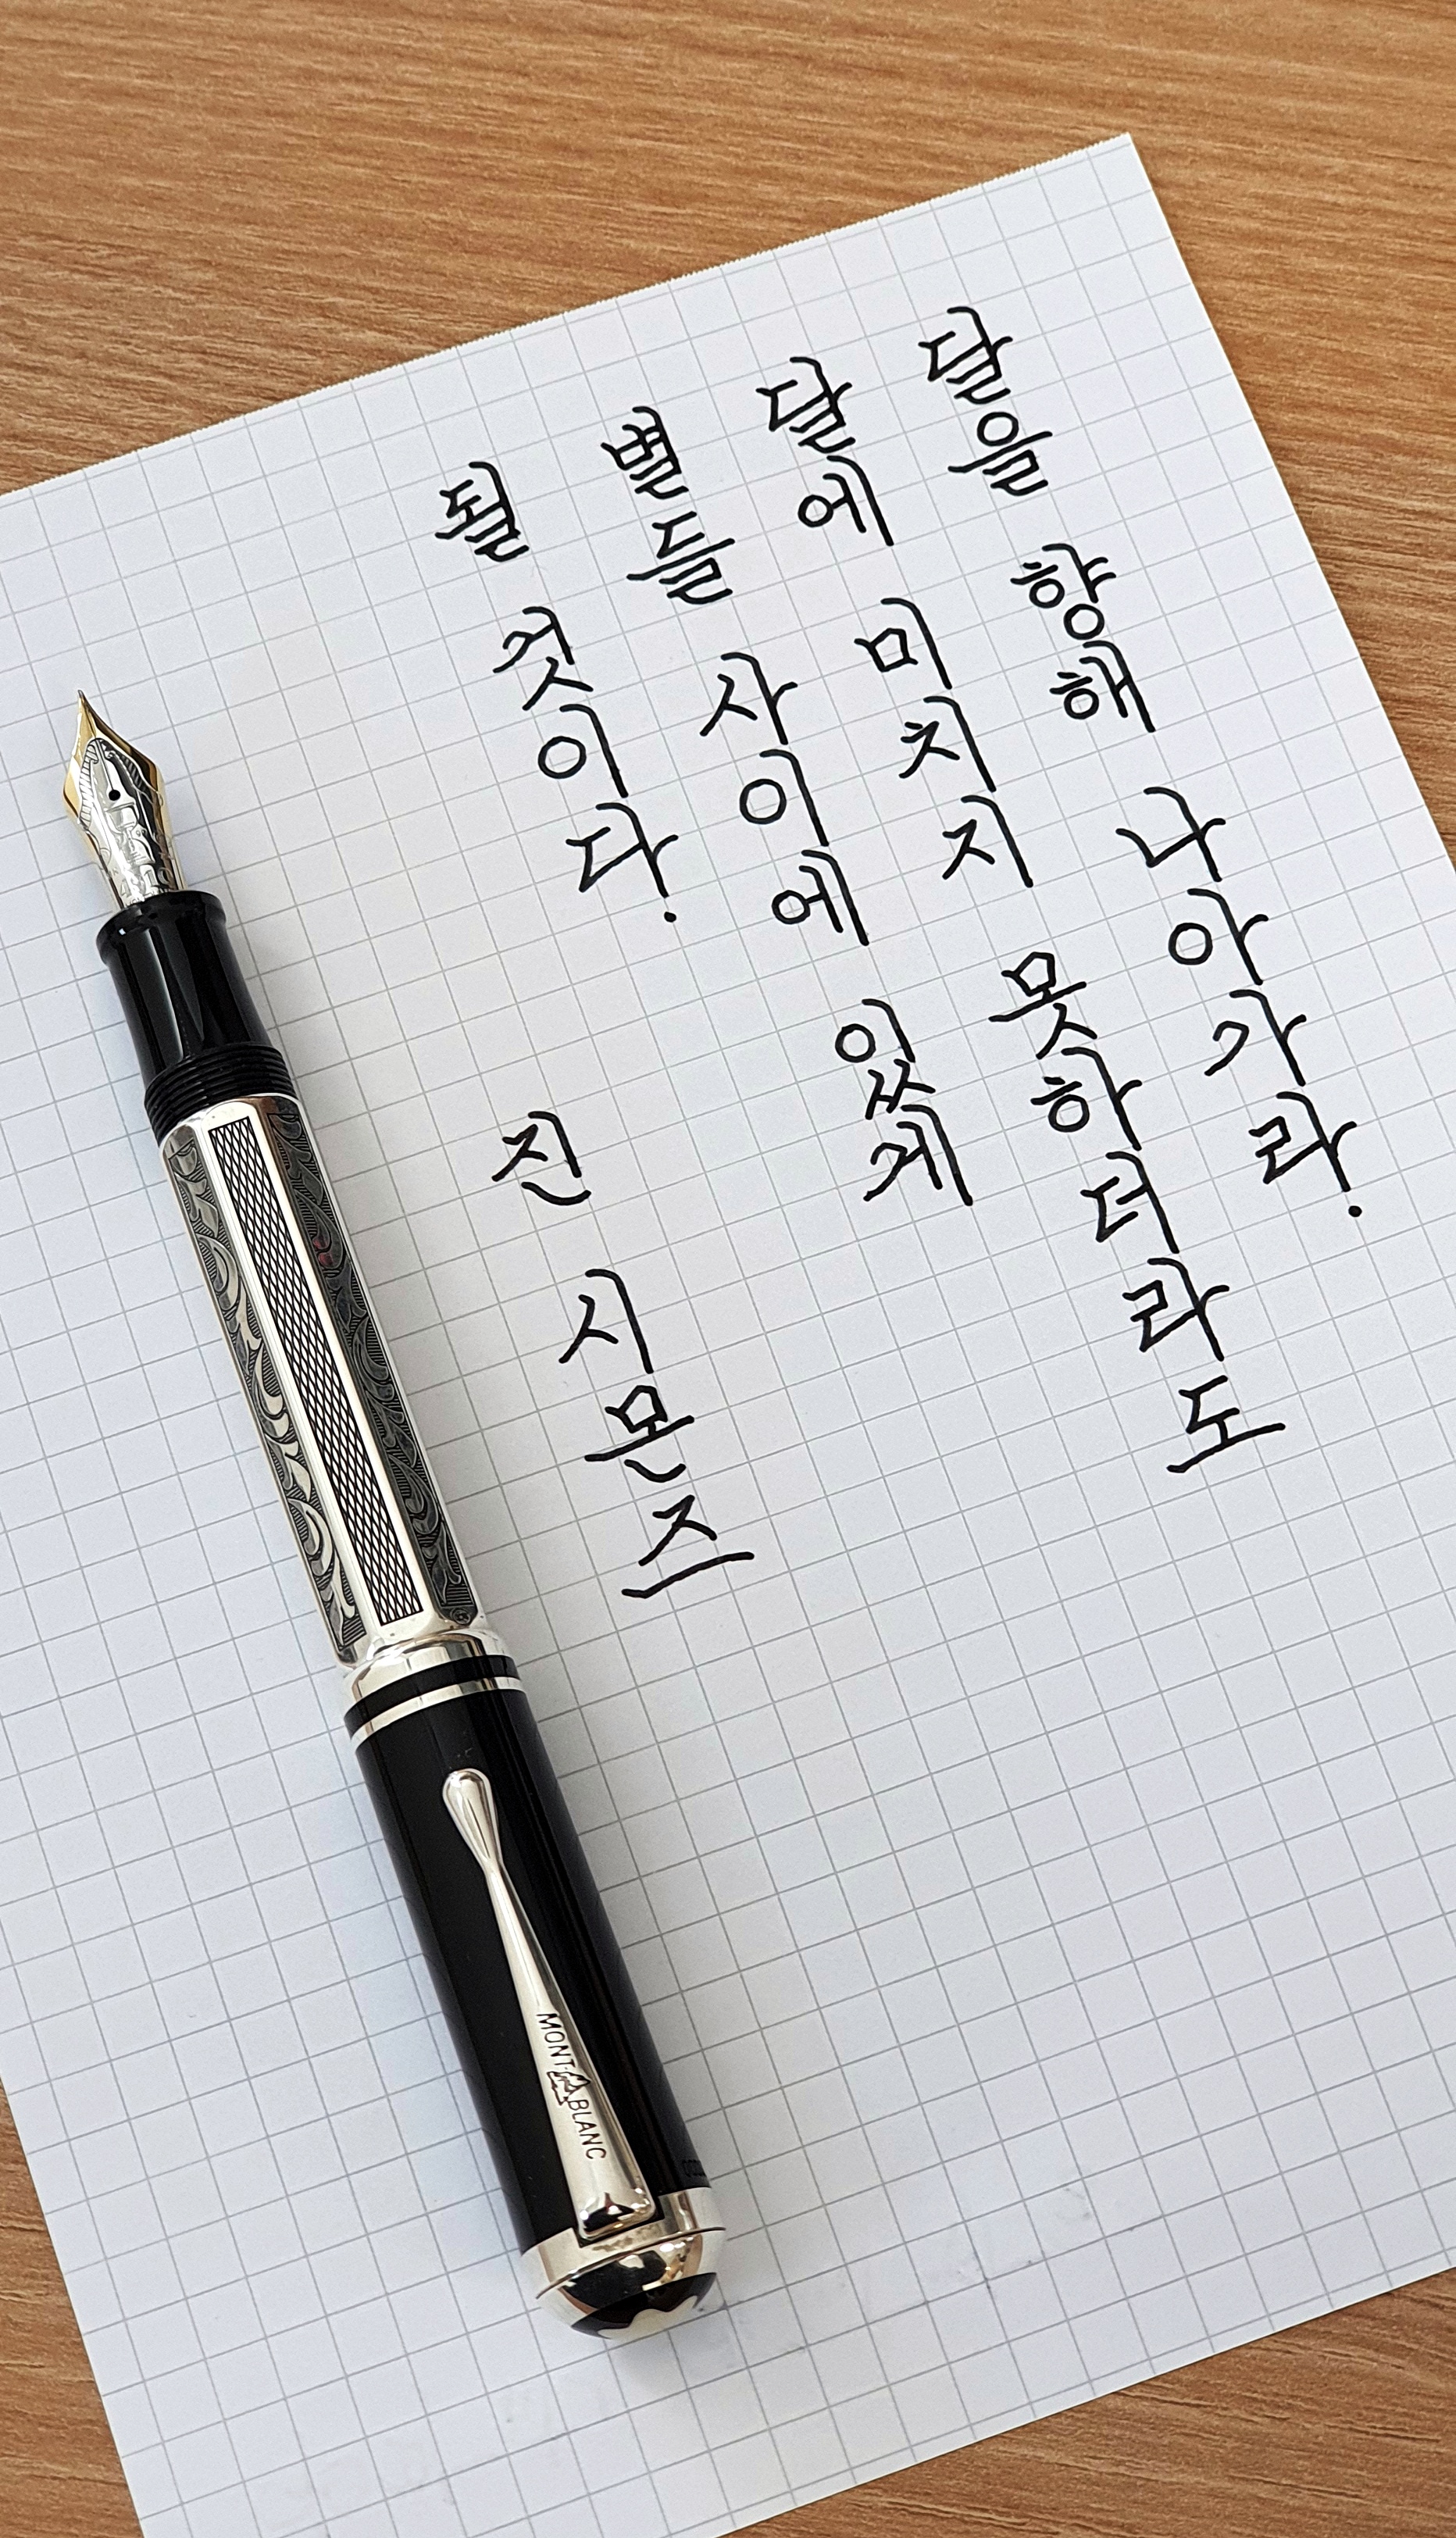 달을 향해 나아가라.
달에 미치지 못하더라도
별들 사이에 있게
될 것이다.
진 시몬즈
MONT BLANC